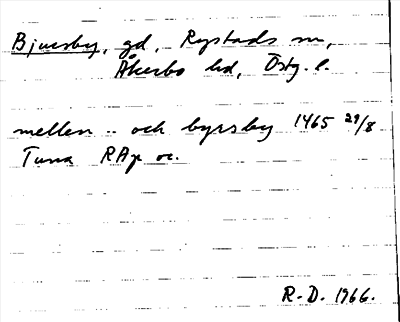 Bjursby, gd, Rystads sn,
Åkerbo hd, Östg. l.
mellen .. och byrsby 1465 29/8
Tuna RAp or.
R.D. 1966.